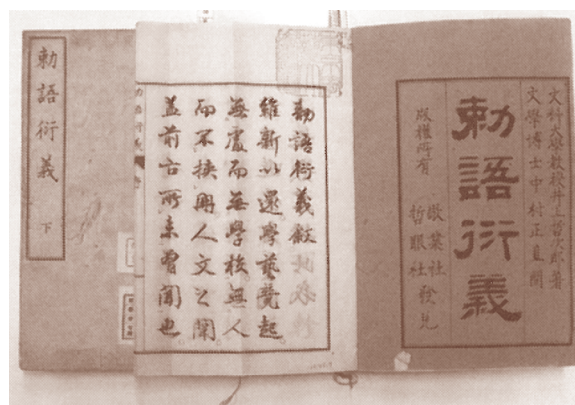 文科大學教授井上哲次郎著
文學博士中村正直閲
勅語衍義
版權所有
敬業社
哲眼社 發兌
勅語衍義敍
維新以還學藝競起
無處而無學校無人
而不挾冊人文之闡
蓋前古所未曾聞也
勅語衍義 下